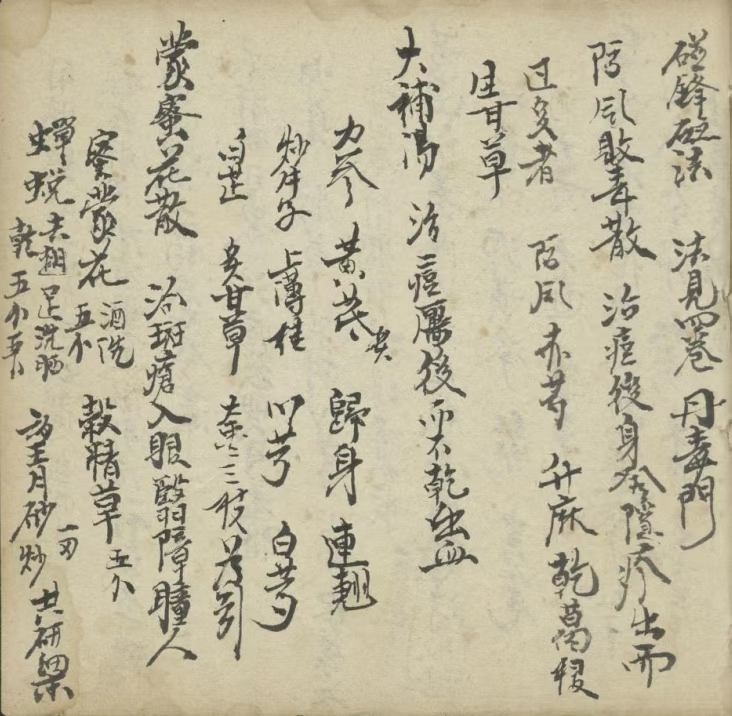 磁鋒砭法 法見四卷丹毒門
防風敗毒散 治痘後身發隱疹出而
过多者 防風 赤芍 升麻 乾葛根
生甘草
大補湯 治痘靨後而不乾出血
力參 黃芪炙 歸身 連翹
炒牛子 上薄桂 川芎 白芍
白芷 炙甘草 枣三枚為引
蒙蜜花散 治斑瘡入眼翳障瞳人
密蒙花酒洗五小 穀精草五小
蟬蛻去翅足洗晒乾五小 望月砂一刄炒 共研細末